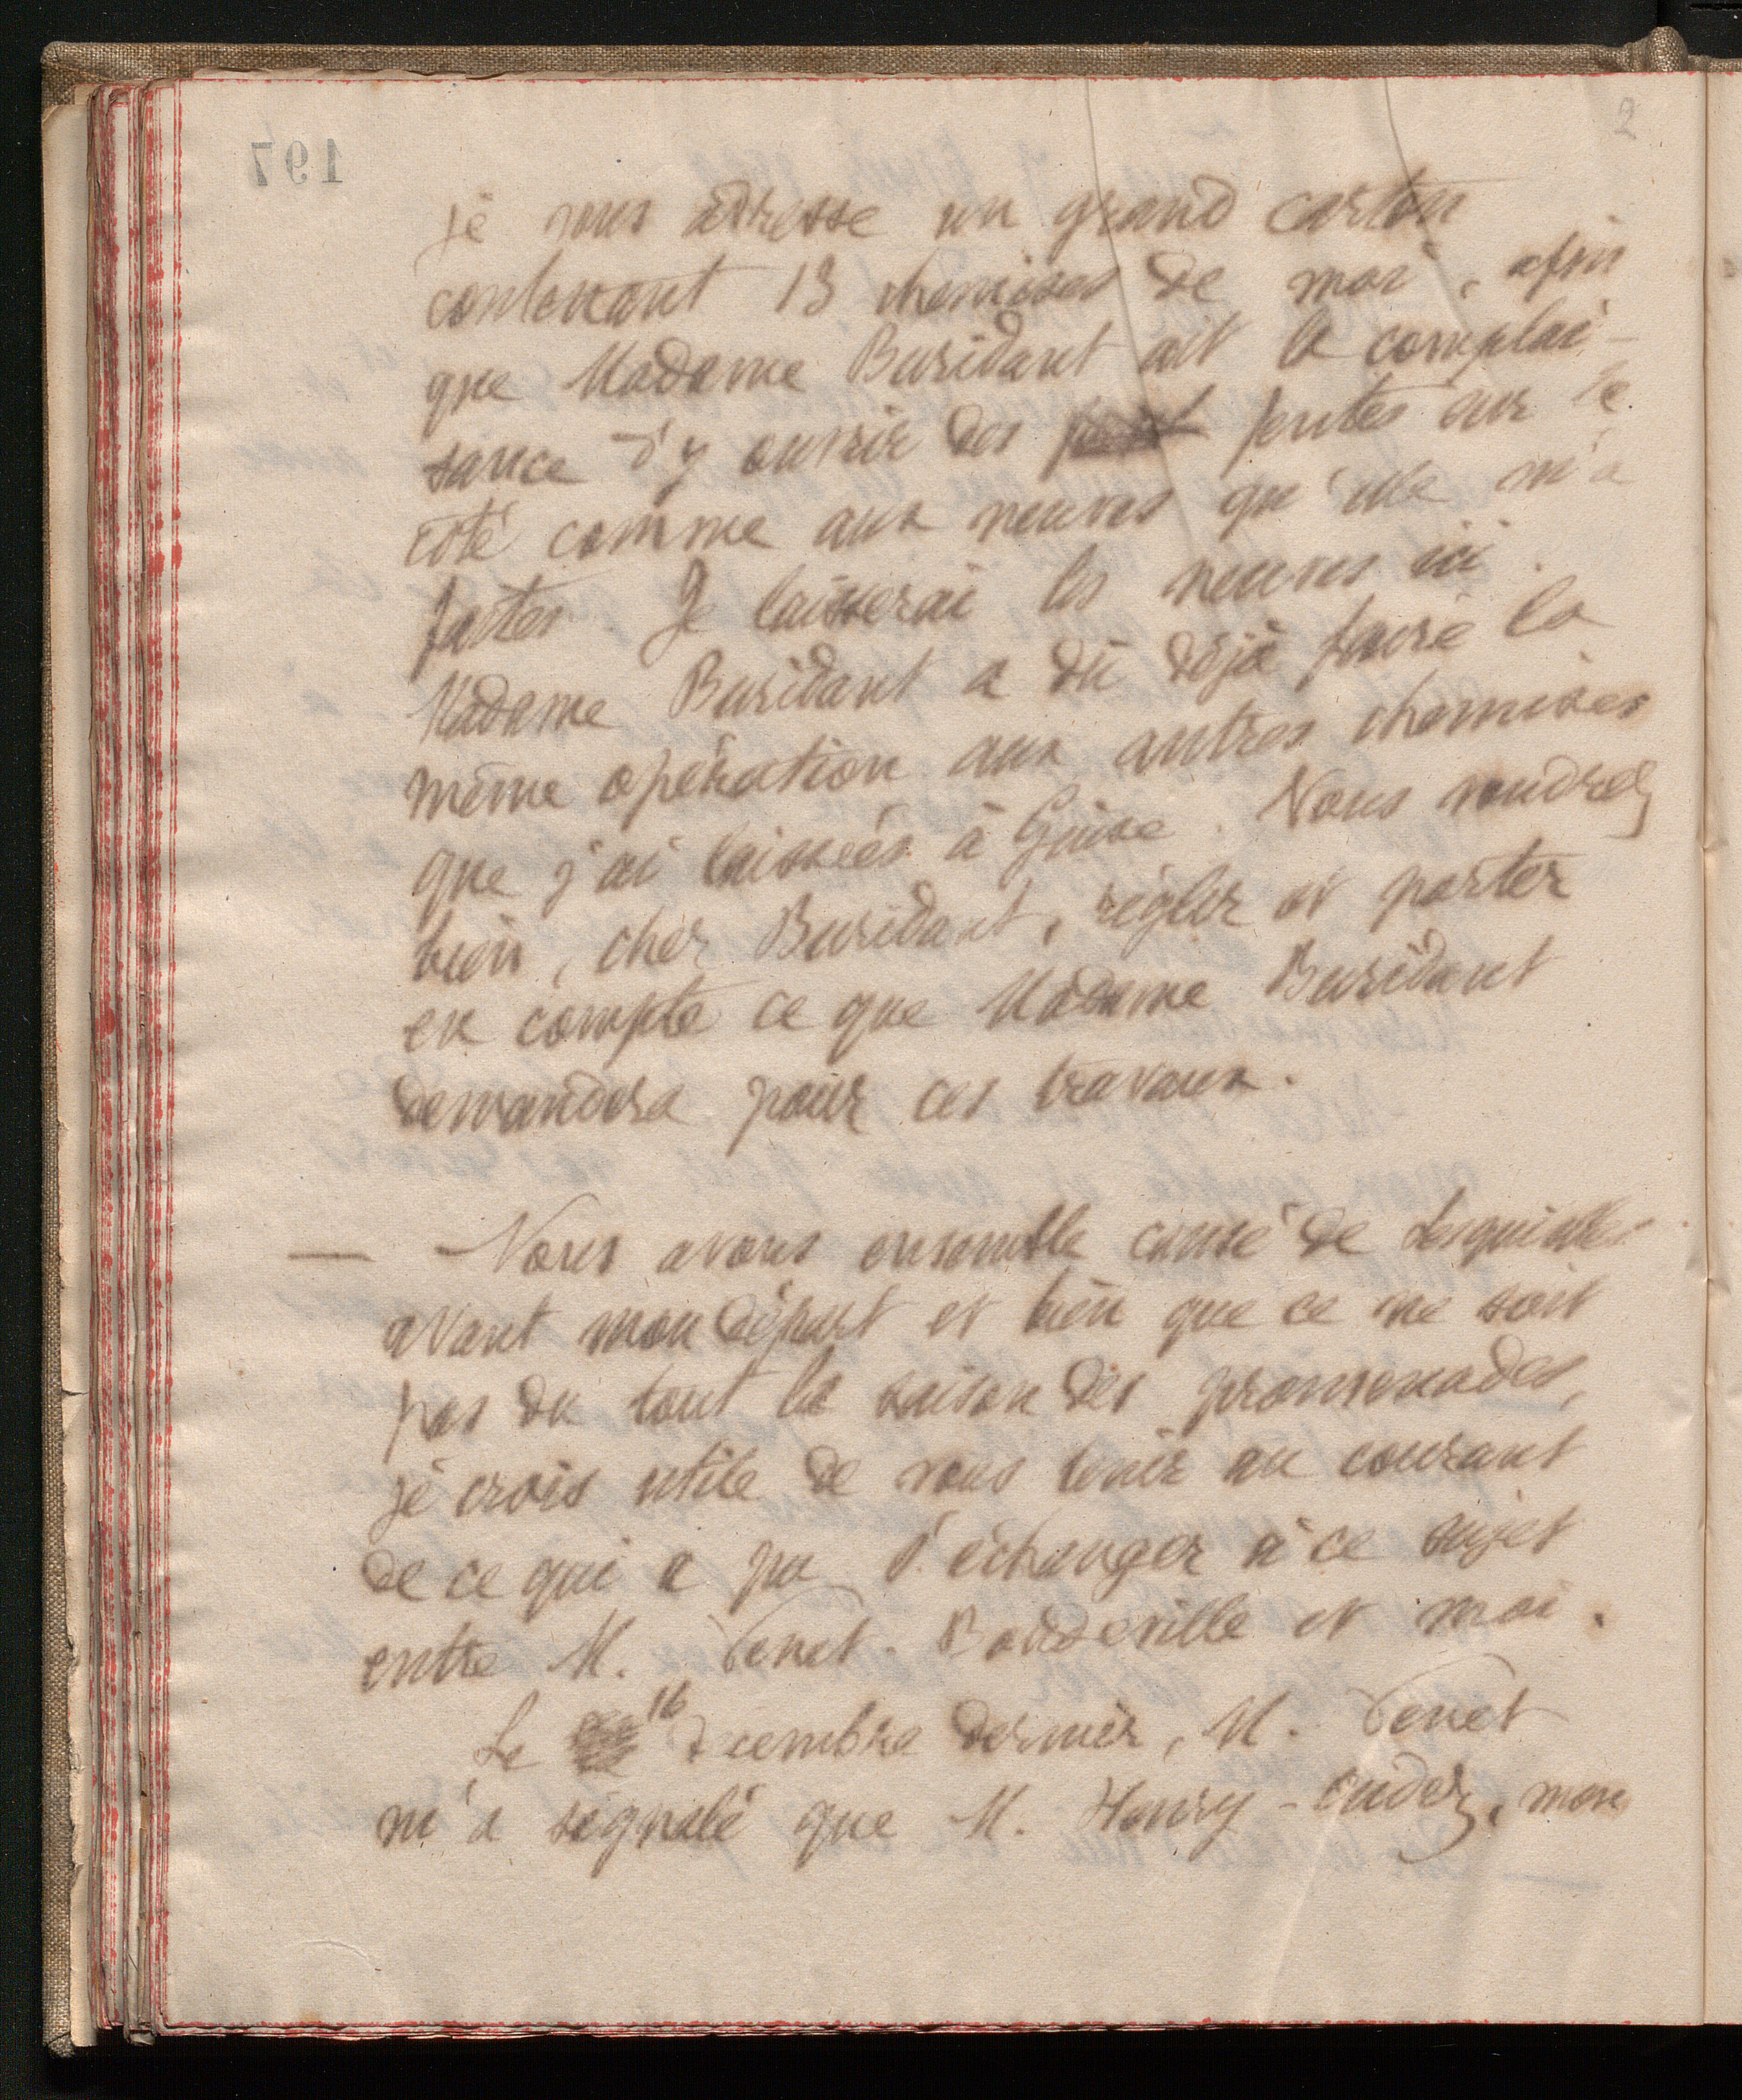 2
197
je vous adresse un grand carton
contenant 13 chemises de moi, afin
que Madame Buridant ait la complai-
sance d'y ouvrir des fentes sur le
côté comme aux neuves qu'elle m'a
faites. Je laisserai les neuves ici.
Madame Buridant a dû déjà faire la
même opération aux autres chemises
que j'ai laissées à Guise. Vous voudrez
bien, cher Buridant, régler et porter
en compte ce que Madame Buridant
demandera pour ces travaux.
— Nous avons ensemble causé de Lesquielles
avant mon départ et bien que ce ne soit
pas du tout la saison des promenades,
je crois utile de vous tenir au courant
de ce qui a pu s'échanger à ce sujet
entre M. Venet. Bondeville et moi.
Le 16 décembre dernier, M. Venet
m'a signalé que M. Henry - mon